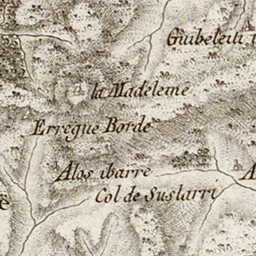 Guibeleiti
la Madeleine
Erregue Borde
Alos ibarre
Col de Suslarri